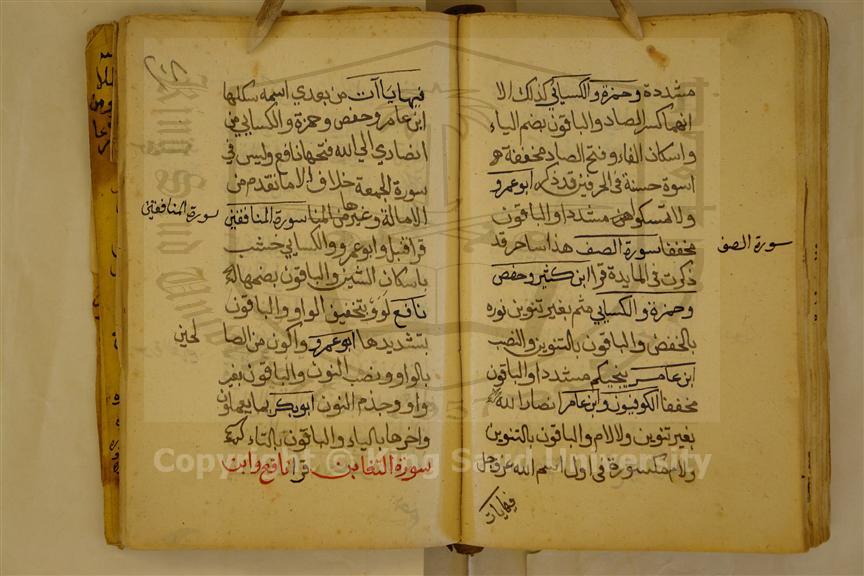 مشددة وحمزة والكسائي كذلك الا
انهما كسرا الصاد والباقون بضم الياء
واسكان الفاء وفتح الصاد مخففة
اسوة حسنة في الحرفين قد ذكر ابو عمرو
ولا تمسكوا مشددا والباقون
مخففا سورة الصف هذا ساحر قد
سورة الصف
ذكرت في المايدة قرا ابن كثير وحفص
وحمزة والكسايي متم بغير تنوين نوره
بالخفض والباقون بالتنوين والنصب
ابن عامر ينجيكم مشددا والباقون
مخففا الكوفيون وابن عامر انصارا لله
بغير تنوين ولا لام والباقون بالتنوين
ولام مكسورة في اول اسم الله عز وجل
فيها يات
فيها ياآت من بعدي اسمه سكنها
ابن عامر وحفص وحمزة والكسايي من
انصاري الي الله فتحها نافع وليس في
سورة الجمعة خلاف الا ما تقدم من
الامالة وغيرها سورة المنافقين
سورة المنافقين
قرا قنبل وابو عمرو والكسايي خشب
باسكان الشين والباقون بضمها
نافع لووا بتخفيف الواو والباقون
بتشديدها ابو عمرو واكون من الصا
لحين
بالواو ونصب النون والباقون بغير
واو وجزم النون ابو بكر بما يعملون
واخرها بالياء والباقون بالتاء
سورة التغابن قرا نافع وابن
Copyright © King Saud University
King Saud University
1957